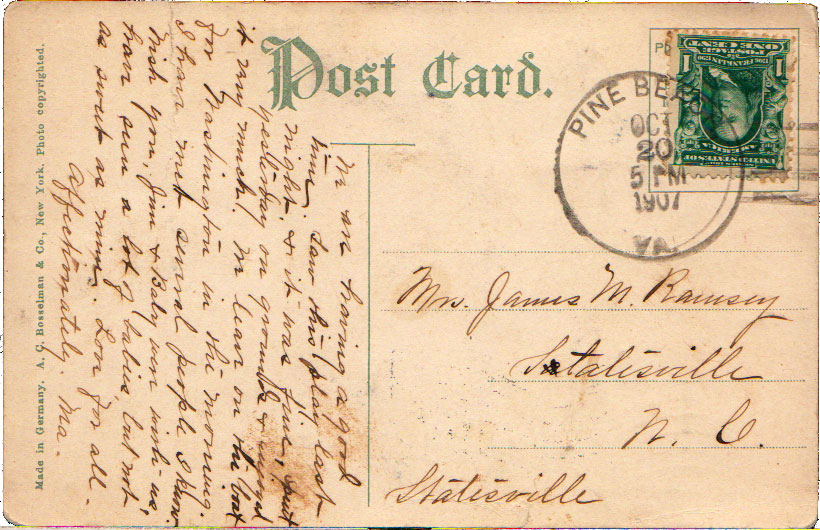 Post Card.
PINE BEACH
OCT
20
5 PM
1907
VA.
ONE CENT
POSTAGE
1 1
UNITED STATES OF
AMERICA
Mrs. James M. Ramsey
Statesville
N. C.
Statesville
We are having a good
time. Saw this play last
night & it was fine, spent
yesterday on grounds & enjoyed
it very much. We leave on the boat
for Washington in the morning.
I have met several people I know.
Wish you, Jim & Baby were with us,
have seen a lot of babies, but not
as sweet as mine. Love for all.
Affectionately. Ma.
Made in Germany. A. C. Bosselman & Co., New York. Photo copyrighted.